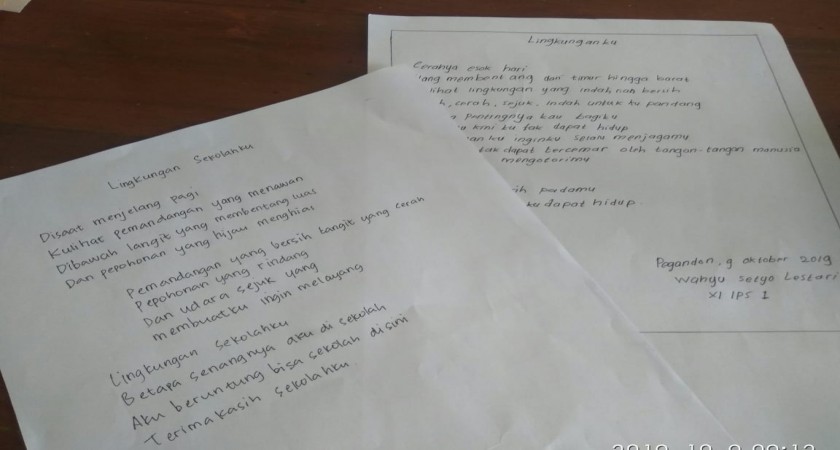 Lingkungan Sekolahku
Disaat menjelang pagi
Kulihat pemandangan yang menawan
Dibawah langit yang membentang luas
Dan pepohonan yang hijau menghias
Pemandangan yang bersih langit yang cerah
Pepohonan yang rindang
Dan udara sejuk yang
membuatku ingin melayang
Lingkungan sekolahku
Betapa senangnya aku di sekolah
Aku beruntung bisa sekolah disini
Terimakasih sekolahku
Lingkunganku
Cerahya esok hari
yang membentang dari timur hingga barat
lihat lingkungan yang indah nan bersih
h, cerah, sejuk, indah untuk ku pandang
pentingnya kau bagiku
kini ku tak dapat hidup
ku inginku selalu menjagamu
tak dapat tercemar oleh tangan-tangan manusia
mengotorimu
ih padamu
ku dapat hidup.
Pagandon, 9 oktober 2019
Wahyu Setyo Lestari
XI IPS 1